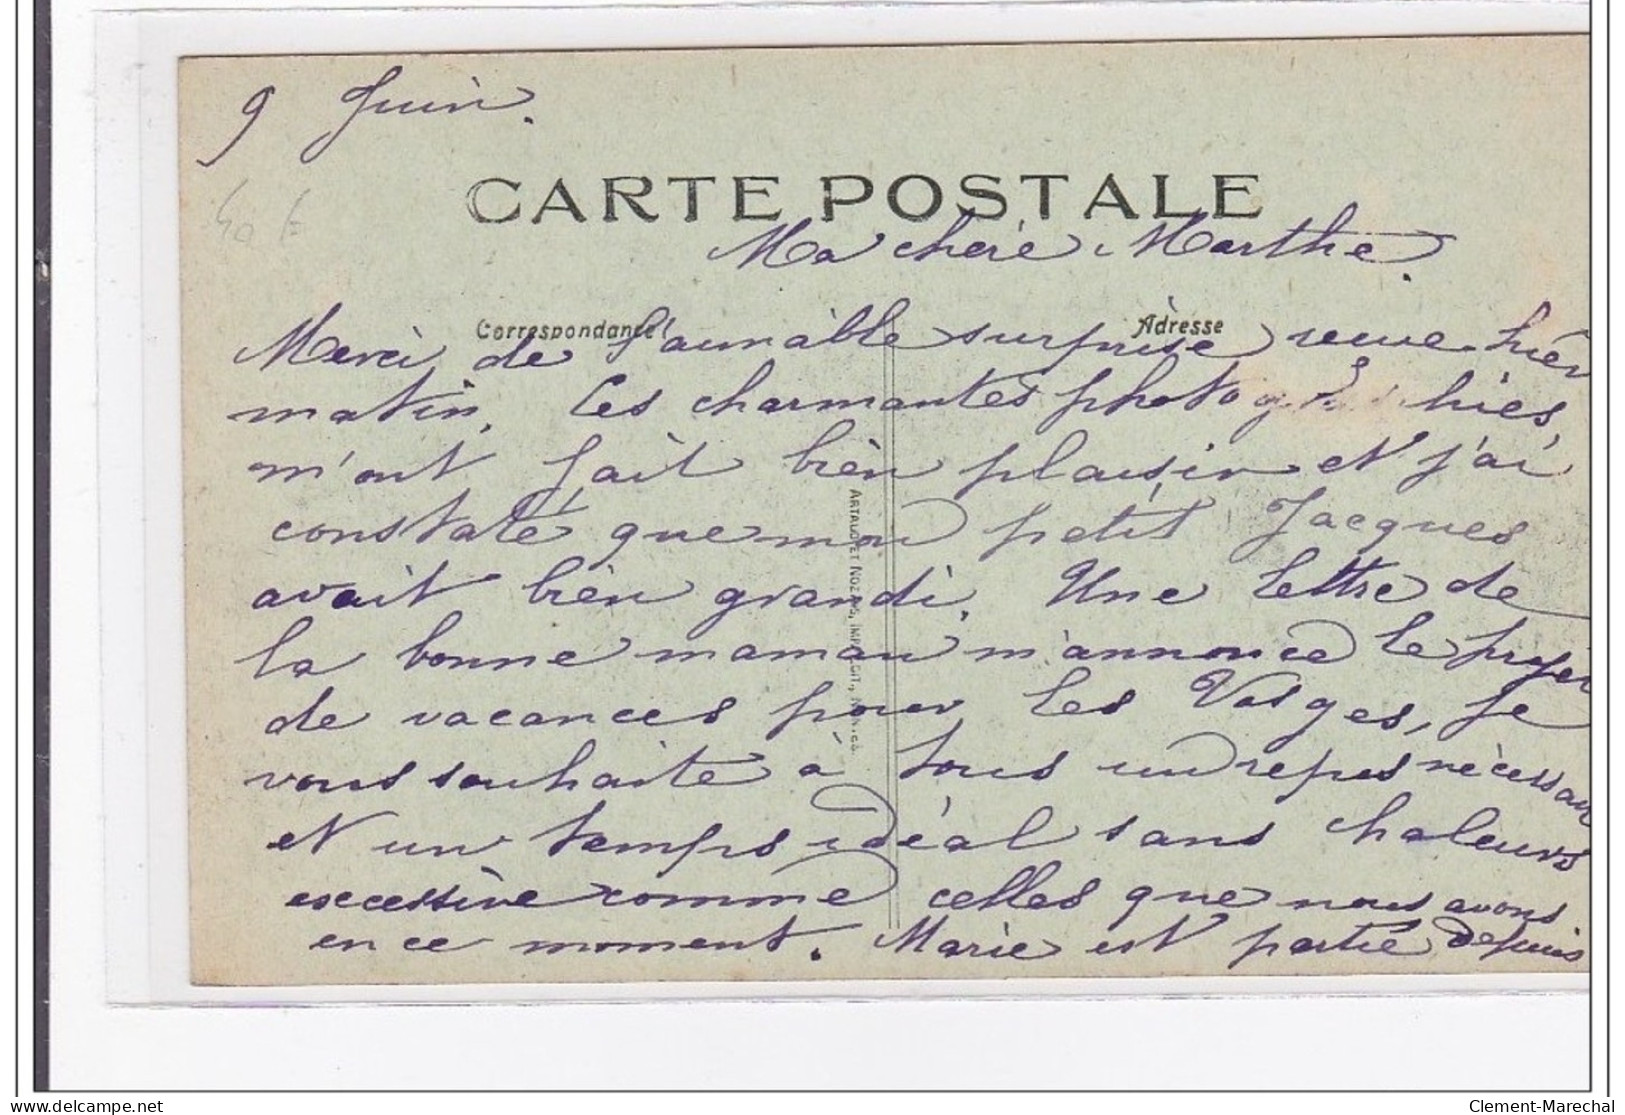 9 Juin.
40 E
CARTE POSTALE
Ma chère Marthe.
Correspondance
Adresse
Merci de l'aimable surprise reçue hier
matin. Les charmantes photographies,
m'ont fait bien plaisir et j'ai
constaté que mon petit Jacques
avait bien grandi. Une lettre de
la bonne maman m'annonce le projet
de vacances pour les Vosges, je
vous souhaite à tous un repos nécessaire
et un temps idéal sans chaleurs
excessive comme celles que nous avons
en ce moment. Marie est partie depuis
ARTAUD ET NOZAIS, IMP.
Clement-Marechal